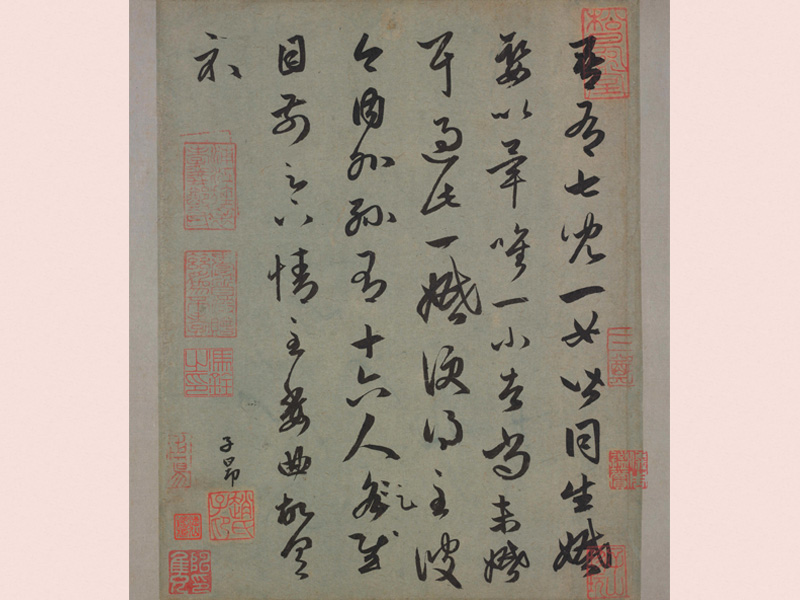 松雪齋
吾有七兒一女皆同生婚
娶以畢唯一小者尚未婚
耳過此一婚便得至彼
今內外孫有十六人足慰
目前足下情至委曲故具
示
子昂
趙氏子昂